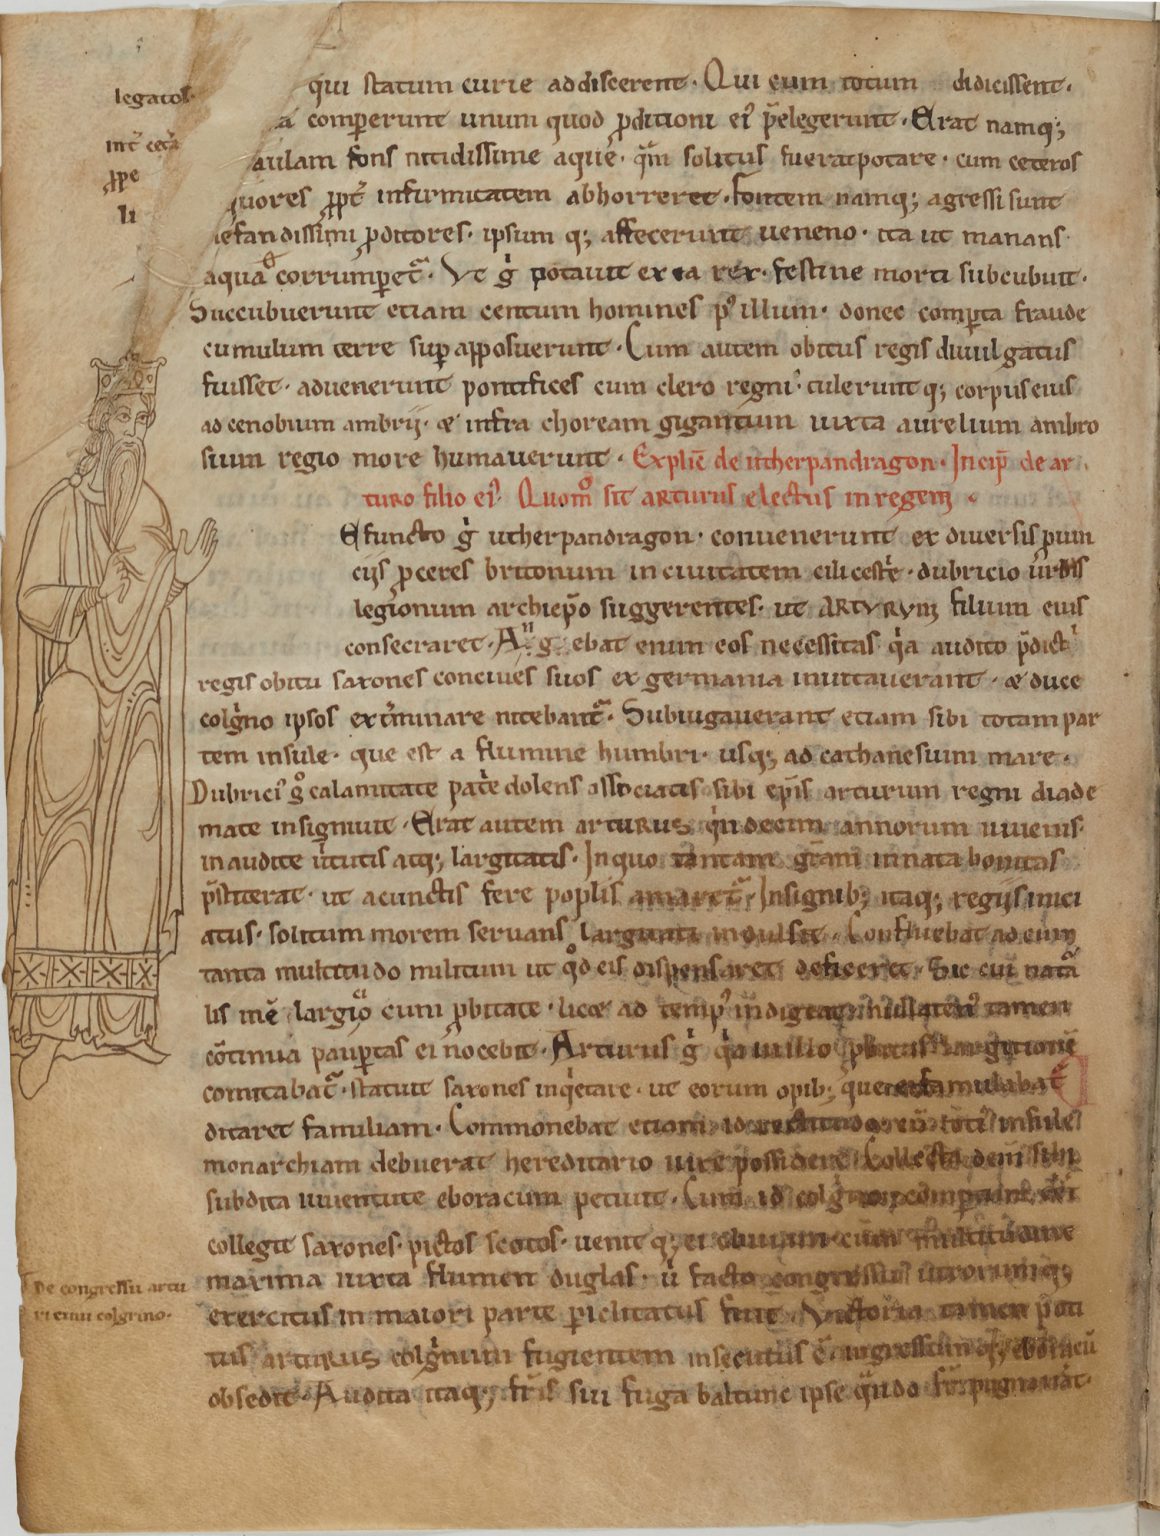 legatos
int̄ cet̄a
ꝓpe
li
qui statum curie addiscerent. Qui cum totum didicissent.
a compererunt unum quod ꝓditioni ei᾽ p̄elegerunt. Erat namq;
aulam fons nitidissime aque. quā solitus fuerat potare. cum ceteros
quores ꝓpt̄ infirmitatem abhorreret. fontem namq; agressi sunt
nefandissimi ꝓditores. ipsum q; affecerunt ueneno. ita ut manans
aqua corrumperet᷑. Vt gͥ potauit ex ea rex. festine morti subcubuit.
Succubuerunt etiam centum homines p᾽ illum. donec comꝑta fraude
cumulum terre suꝑ apposuerunt. Cum autem obitus regis diuulgatus
fuisset. aduenerunt pontifices cum clero regni. tulerunt q; corpus eius
ad cenobium ambrij. & infra choream gigantum iuxta aurelium ambro
sium regio more humauerunt. Explic̄ de utherpandragon. Incip̄ de ar
turo filio ei᾽. Quom̊ sit arturus electus in regem.
Efuncto gͥ utherpandragon. conuenerunt ex diuersis ꝓuin
cijs ꝓceres britonum in ciuitatem cilicestͥe. dubricio urbis
legionum archiep̄o suggerentes. ut ARTVRVm filium eius
consecraret. Angebat enim eos necessitas qͥa audito p̄dictͥ
regis obitu saxones conciues suos ex germania inuitauerant. & duce
colgͥno ipsos extͥminare nitebant᷑. Subiugauerant etiam sibi totam par
tem insule. que est a flumine humbri. usq; ad cathanesium mare.
Dubrici᾽ gͦ calamitate patͥe dolens associatis sibi ep̄is arturum regni diade
mate insigniuit. Erat autem arturus qͥndecim annorum iuuenis.
inaudite uͥtutis atq; largitatis. In quo tantam grām innata bonitas
p̄stiterat. ut a cunctis fere popl̄is amaret᷑. Insignib; itaq; regijs inici
atus. solitum morem seruans largitati indulsit. Confluebat ad eum
tanta multitudo militum ut qͦd eis dispensaret deficeret. Sic cui natͣ
lis inē largiō cum ꝓbitate. licet ad temp᾽ indigeat nullaten᾽ tamen
cōtinua pauꝑtas ei nocebit. Arturus gͥ qͥa in illo ꝓbitas largitionē
comitabat᷑. statuit saxones inqͥetare. ut eorum opib; que ei famulabat᷑
ditaret familiam. Commonebat etiam id rectitudo. cū toti᾽ insule
monarchiam debuerat hereditario iure possidere. Collecta dein̄ sibi
subdita iuuentute eboracum petiuit. Cum id colgͥno compertum ēēt
collegit saxones. pictos scotos. uenit q; ei obuiam cum multitudine
maxima iuxta flumen duglas. uͥ facto congressu utrorumq;
exercitus in maiori parte ꝑiclitatus fuit. Victoria tamen poti
tus arturus colgͥnum fugientem insecutus ē. ingressum q; eboracū
obsedit. Audita itaq; frīs sui fuga baldulf
De congressu artu
ri cum colgrino.